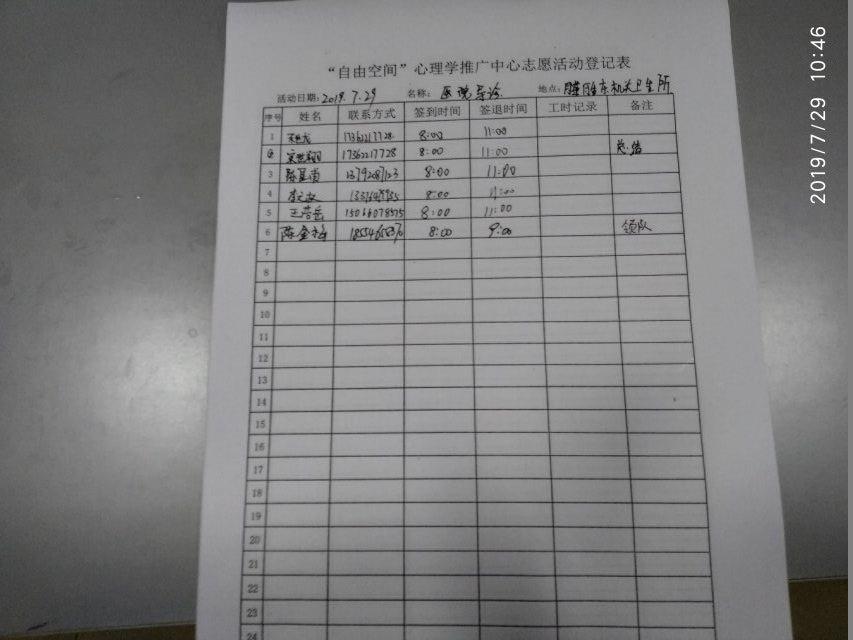 “自由空间”心理学推广中心志愿活动登记表
活动日期: 2019.7.29 名称: 医院导诊 地点: 机关卫生所
序号 姓名 联系方式 签到时间 签退时间 工时记录 备注
1 17362217728 8:00 11:00
2 17362217728 8:00 11:00 总结
3 8:00 11:00
4 8:00 11:00
5 王若岳 15066078575 8:00 11:00
6 陈金裕 8:00 9:00 领队
7
8
9
10
11
12
13
14
15
16
17
18
19
20
21
22
23
24
2019/7/29 10:46